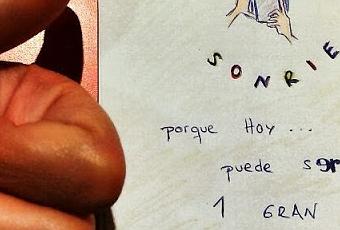 SONRIE
porque HOY ...
puede ser
1 GRAN